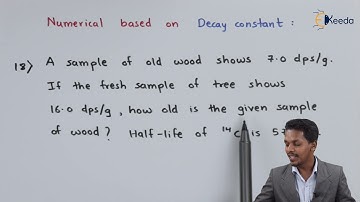 Keeda
Numerical based on Decay constant :
18) A sample of old wood shows 7.0 dps/g.
If the fresh sample of tree shows
16.0 dps/g, how old is the given sample
of wood? Half-life of ¹⁴C is